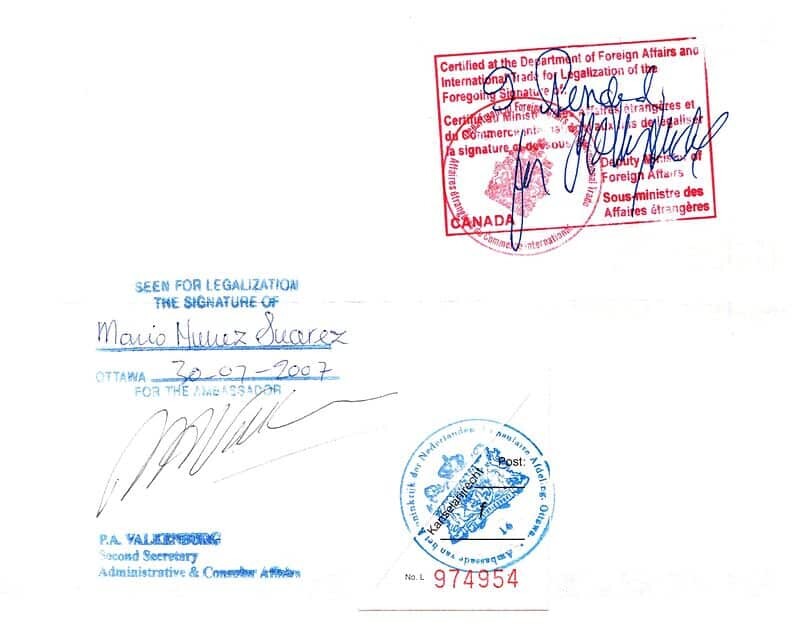 Certified at the Department of Foreign Affairs and
International Trade for Legalization of the
Foregoing Signature of
Certifié au Minist des Affaires étrangères et
du Commerce international aux fins de légaliser
la signature ci-dessous
Deputy Minister of
Foreign Affairs
Sous-ministre des
Affaires étrangères
CANADA
SEEN FOR LEGALIZATION
THE SIGNATURE OF
Mario Nunez Suarez
OTTAWA 30-07-2007
FOR THE AMBASSADOR
P.A. VALKENBURG
Second Secretary
Administrative & Consular Affairs
Ambassade van het Koninkrijk der Nederlanden Consulaire Afdeling, Ottawa.
16
Post:
Kanselarijrecht
No. L 974954